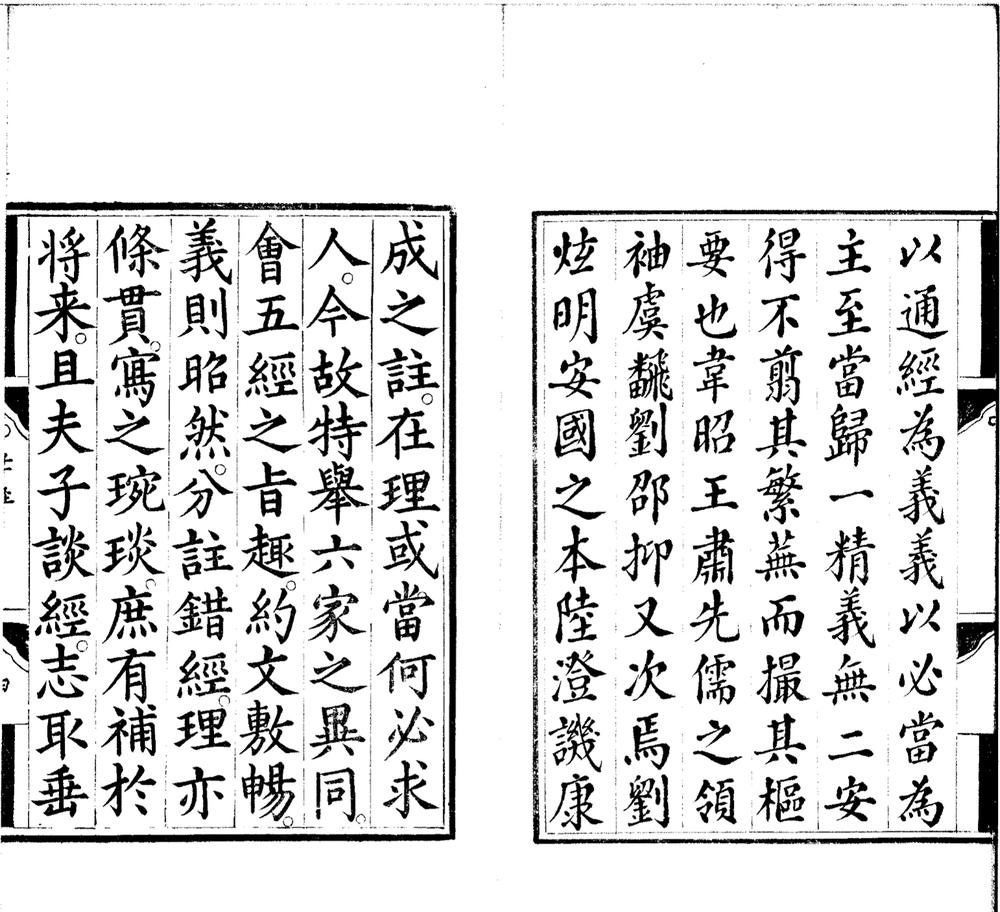 以通經為義義以必當為
主至當歸一精義無二安
得不翦其繁蕪而撮其樞
要也韋昭王肅先儒之領
袖虞飜劉邵抑又次焉劉
炫明安國之本陸澄譏康
成之註。在理或當何必求
人。今故特舉六家之異同。
會五經之旨趣。約文敷暢。
義則昭然。分註錯經。理亦
條貫。寫之琬琰。庶有補於
將来。且夫子談經。志取垂